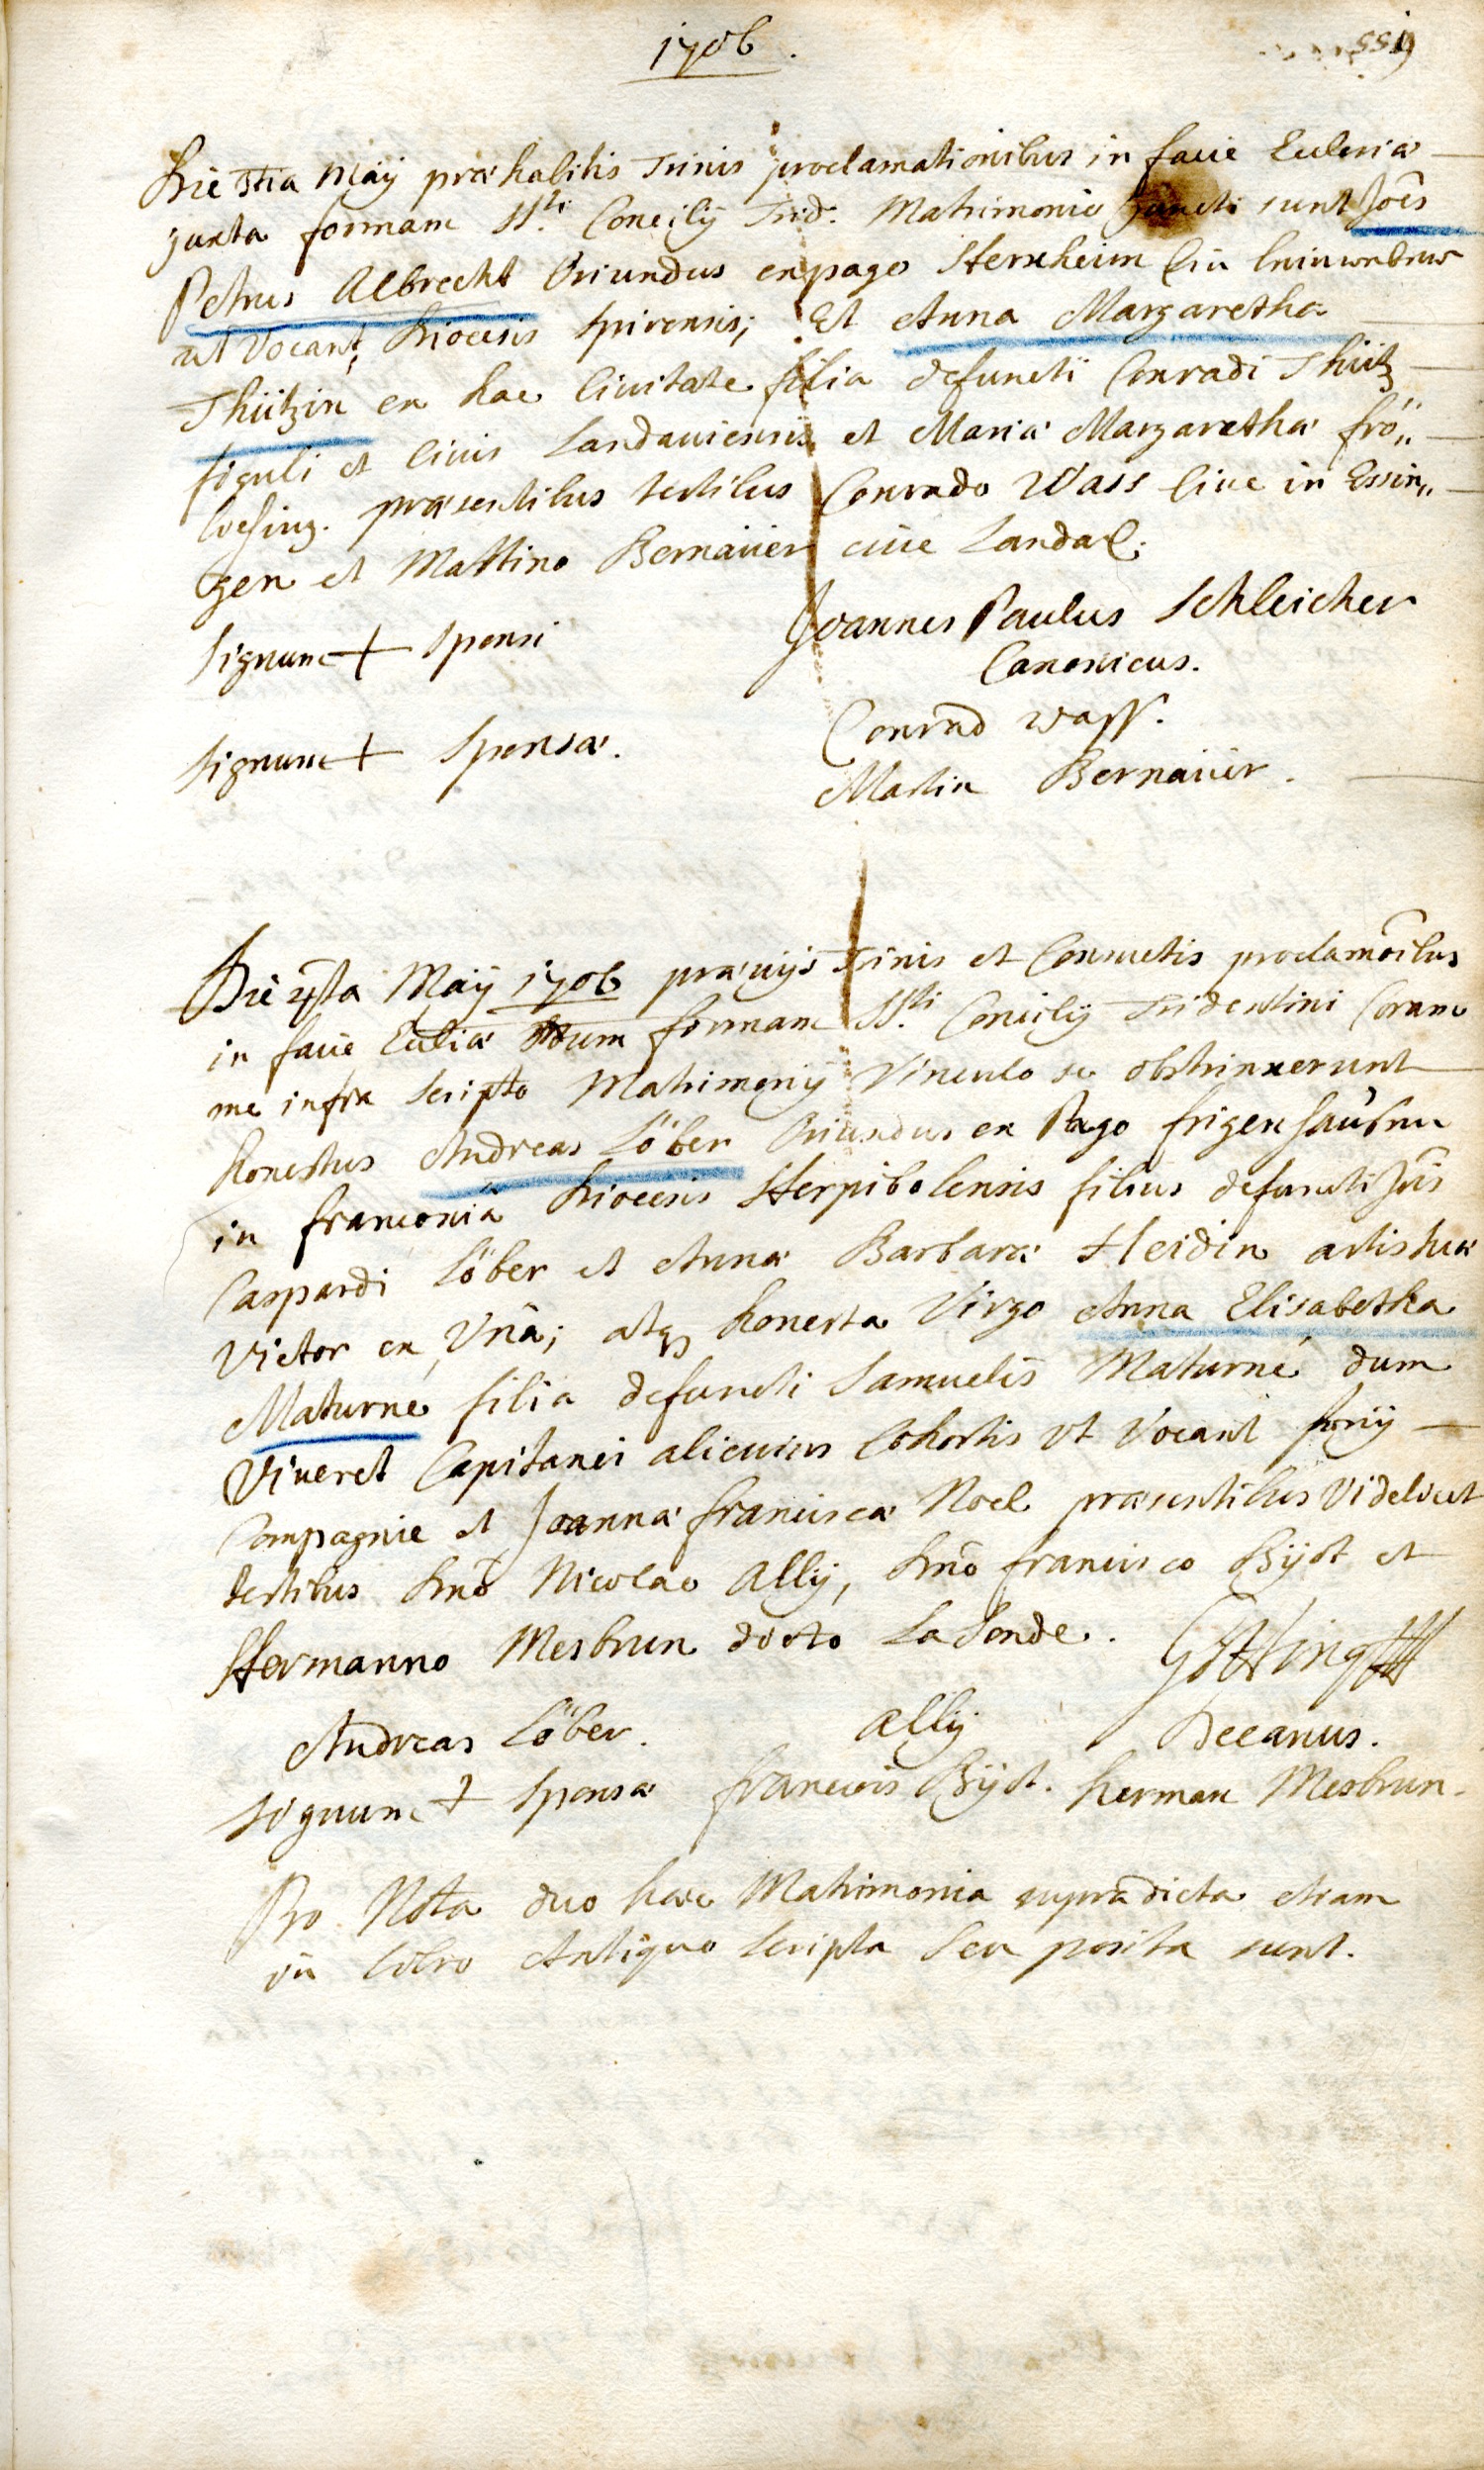 1706.
Die 3tia Maÿ præhabitis Trinis proclamationibus in facie Ecclesiæ
juxta formam SSti Concilÿ Trid. Matrimonio juncti sunt Joês
Petrus Albrecht Oriundus ex pago Herxheim ein leinweber
ut Vocant, Diœcesis Spirensis; Et Anna Margaretha
Thützin ex hac Civitate filia defuncti Conradi Thütz
figuli et Civis Landaviensis et Mariæ Margarethæ frö„
præsentibus testibus Conrado Wass Cive in Essin„
gen et Mattino Bernauer cive Landa
Signum + Sponsi
Joannes Paulus Schleicher
Canonicus.
Signum + Sponsæ.
Conrad Wass.
Martin Bernauer.
Die 4ta Maÿ 1706 prævÿs Trinis et Consuetis proclamõibus
in facie Eccliæ formam SSti Concilÿ Tridentini Coram
me infra scripto Matrimonÿ Vinculo se obstrinxerunt
honestus Andreas Löber Oriundus ex Pago frigenhausen
in franconiâ Diœcesis Herpibolensis filius defuncti Jois
Caspardi Löber et Annæ Barbaræ Heidin artis suæ
Victor ex Vnâ; atq honesta Virgo Anna Elisabetha
Maturné filia defuncti Samuelis Maturné dum
Viveret Capitanei alicuius Cohortis Vt Vocant
Compagnie et Joannæ franciscæ Noel præsentibus Videlicet
testibus Dnõ Nicolao Allÿ, Dnõ francisco Bÿot et
Hermanno Mesbrun dicto LaSonde.
Götting
Andreas Löber.
Allÿ
Decanus.
Signum + Sponsæ
francois Bÿot.
herman Mesbrun.
Pro Nota duo hæc Matrimonia supradicta etiam
in libro Antiquo scripta seu posita sunt.